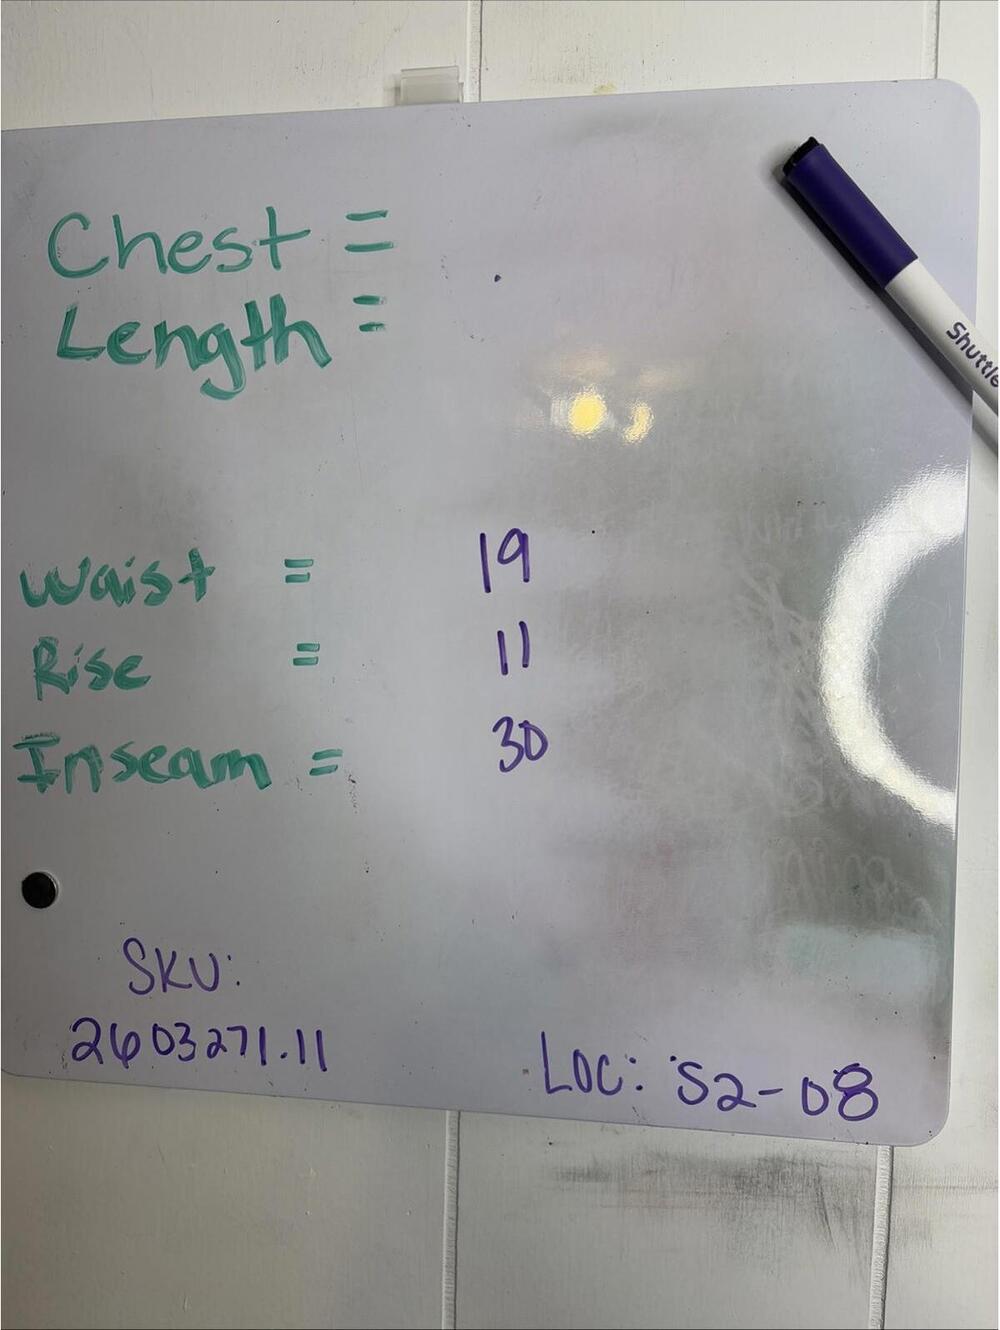 Chest =
Length =
Shuttle
Waist = 19
Rise = 11
Inseam = 30
SKU:
2603271.11
LOC: S2-08